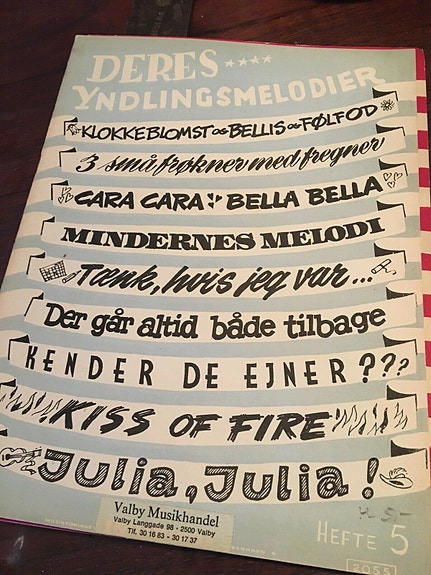 DERES
YNDLINGSMELODIER
KLOKKEBLOMST OG BELLIS OG FØLFOD
3 små frøkner med fregner
CARA CARA BELLA BELLA
MINDERNES MELODI
Tænk, hvis jeg var...
Der går altid både tilbage
KENDER DE EJNER???
KISS OF FIRE
Julia, Julia!
Valby Musikhandel
Valby Langgade 98 - 2500 Valby
Tlf. 30 16 83 - 30 17 37
HEFTE 5
2055